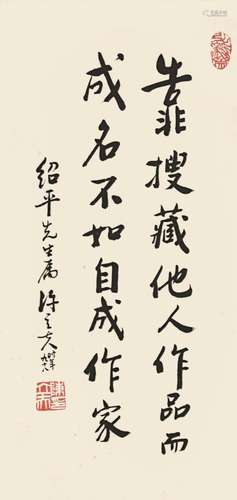 靠搜藏他人作品而
成名不如自成作家
绍平先生属 陈立夫